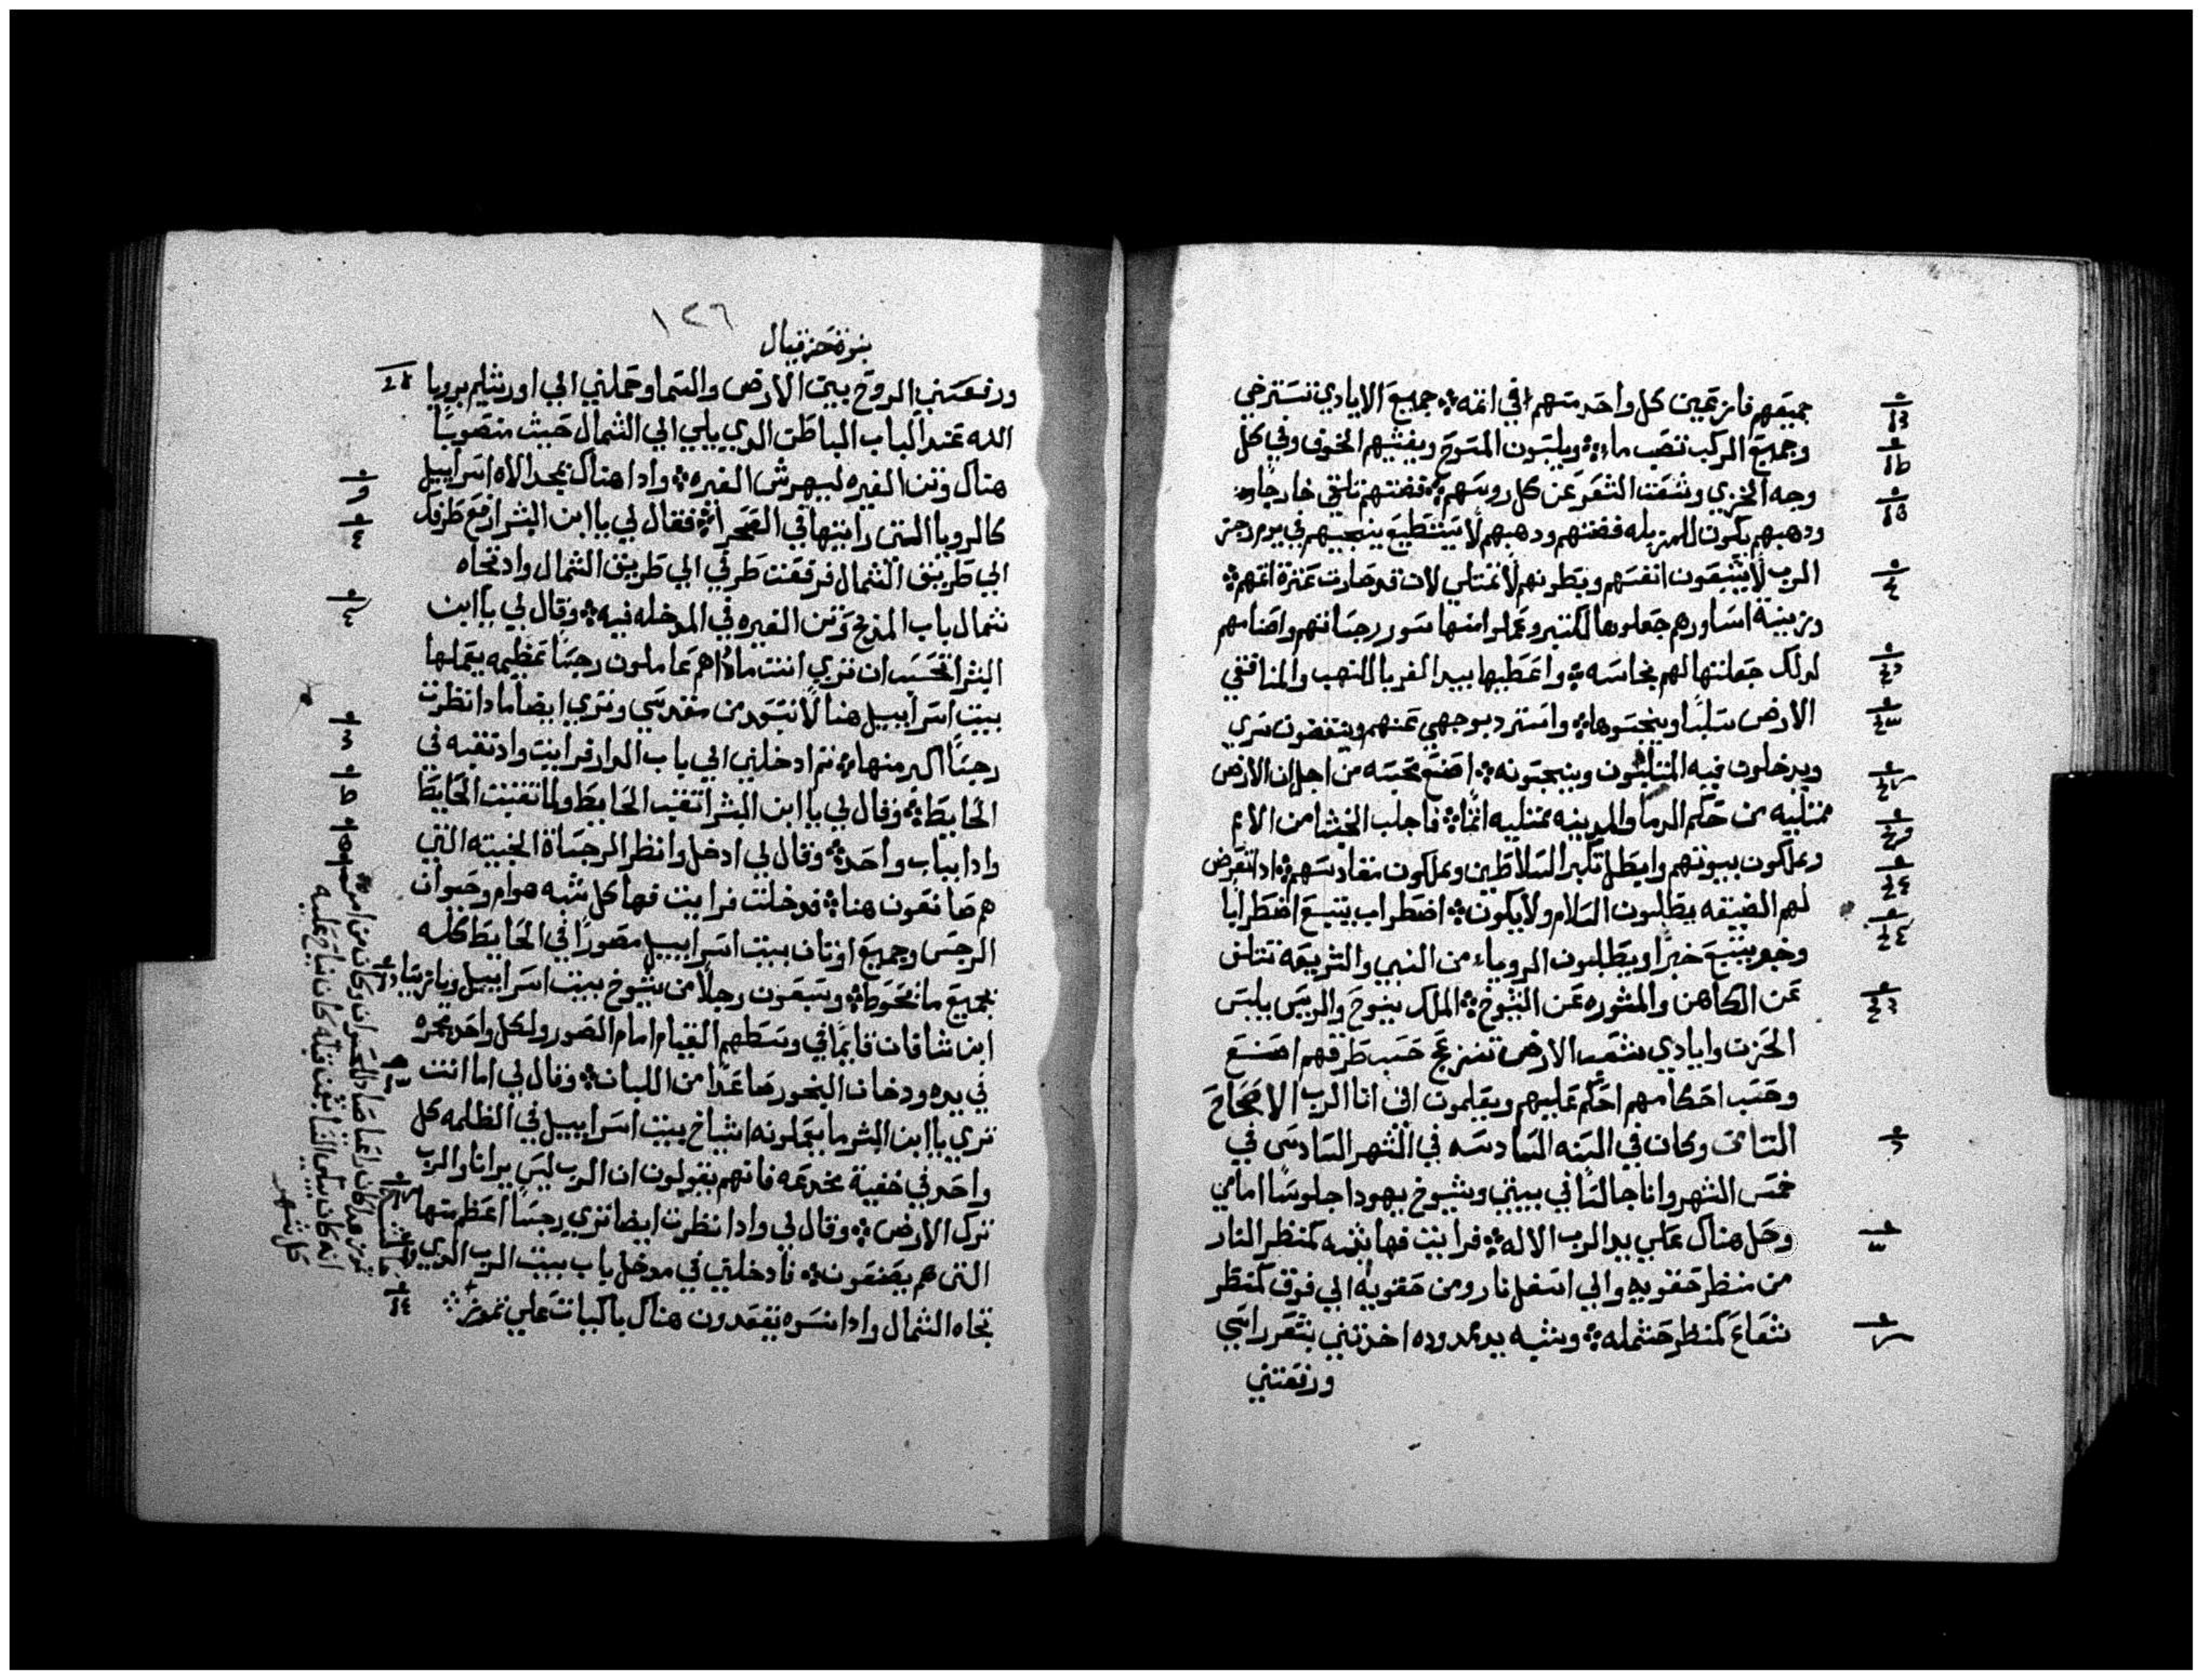 جميعهم فازعين كل واحد منهم في اتمه ܀ جميع الايادي تسترخي
وجميع الركب تنصب ماء ܀ ويلبسون المسوح ويغشيهم الخوف وفي كل
وجه الخزي وشعث الشعر عن كل روسهم ܀ فضتهم تلقى خارجاً
ودهبهم يكون للمزبله فضتهم ودهبهم لا يستطيع ينجيهم في يوم رجز
الرب لا يشبعون انفسهم وبطونهم لا تمتلي لان قد صارت عثرة اتمهم ܀
وزينة اساورهم جعلوها للكبر وعملوا منها صور رجساتهم واصنامهم
لدلك جعلتها لهم نجاسه ܀ واعطيها بيد الغربا للنهب والمنافقي
الارض سلباً وينجسوها ܀ واسترد بوجهي عنهم وينقضون سري
ويدخلون فيه المتلبون وينجسونه ܀ اصنع نجسه من اجل ان الارض
ممتليه من حكم الدما والمدينه ممتليه اتماً ܀ فاجلب الخشا من الامم
ويملكون بيوتهم وابطل تكبر السلاطين ويملكون مقادسهم ܀ ادا تعرض
لهم الضيقه يطلبون السلام ولا يكون ܀ اضطراب يتبع اضطراباً
وخبر يتبع خبراً ويطلبون الروياء من النبي والشريعه تتلف
عن الكاهن والمشوره عن الشيوخ ܀ الملك ينوح والريس يلبس
الحزن وايادي شعب الارض تنزعج حسب طرقهم اصنع
وحسب احكامهم احكم عليهم ويعلمون اني انا الرب الاصحاح
التامن وكان في السنه السادسه في الشهر السادس في
خمس الشهر وانا جالساً في بيتي وشيوخ يهودا جلوساً امامي
وحل هناك علي يد الرب الاله ܀ فرايت فها شبه كمنظر النار
من منظر حقويه والي اسفل نار ومن حقويه الي فوق كمنظر
شعاع كمنظر حشمله ܀ وشبه يد ممدوده اخدتني بشعر راسي
ورفعتني
١٢٦
نبوة حزقيال
ورفعتني الروح بين الارض والسما وحملني الي اورشليم برويا
الله عند الباب الباطن الدي يلي الي الشمال حيث منصوباً
هناك وتن الغيره ܀ وادا هناك مجد الاه اسراييل
كالرويا التي رايتها في الصحرا ܀ فقال لي يا ابن البشر ارفع طرفك
الي طريق الشمال فرفعت طرفي الي طريق الشمال واد تجاه
شمال باب المدبح وتن الغيره في المدخله فيه ܀ وقال لي يا ابن
البشر اتحسب ان تري انت مادا هم عاملون رجساً عظيمه يعملها
بيت اسراييل هنا لابتعد من مقدسي وتري ايضاً مادا نظرت
رجساً اكبر منها ܀ تم ادخلني الي باب الدار فرايت واد تقبه في
الحايط ܀ وقال لي يا ابن البشر اتقب الحايط ولما تقبت الحايط
وادا بباب واحد ܀ وقال لي ادخل وانظر الرجسات الخبيته التي
هم صانعون هنا ܀ فدخلت فرايت فها كل شبه هوام وحيوان
الرجس وجميع اوتان بيت اسراييل مصوراً في الحايط كله
بجميع ما نحوطه ܀ وسبعون رجلاً من شيوخ بيت اسراييل ويازنيا
ابن شافان قايماً في وسطهم القيام امام الصور ولكل واحد مجمره
في يده ودخان البخور صاعداً من اللبان ܀ وقال لي اما انت
تري يا ابن البشر ما يعملونه اشياخ بيت اسراييل في الظلمه كل
واحد في خفية مخدعه فانهم يقولون ان الرب ليس يرانا والرب
ترك الارض ܀ وقال لي وادا نظرت ايضا تري رجساً اعظم منها
التي هم يصنعون ܀ فادخلني في مدخل باب بيت الرب الدي
تجاه الشمال وادا نسوه يقعدون هناك باكيات علي تموز ܀